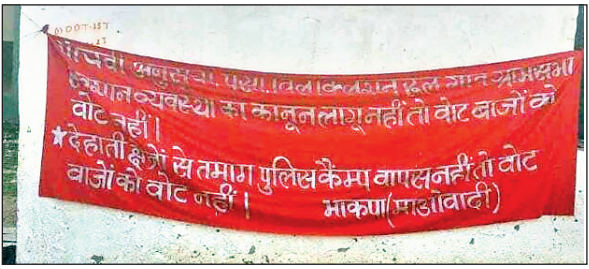 MDDT-157
पांचवी अनुसूची, पेसा, विलकिलशन दूल गांव ग्रामसभा
प्रधान व्यवस्था का कानून लागू नहीं तो वोट बाजों को
वोट नहीं।
★ देहाती क्षेत्रों से तमाम पुलिस कैम्प वापस नहीं तो वोट
बाजों को वोट नहीं।
भाकपा (माओवादी)